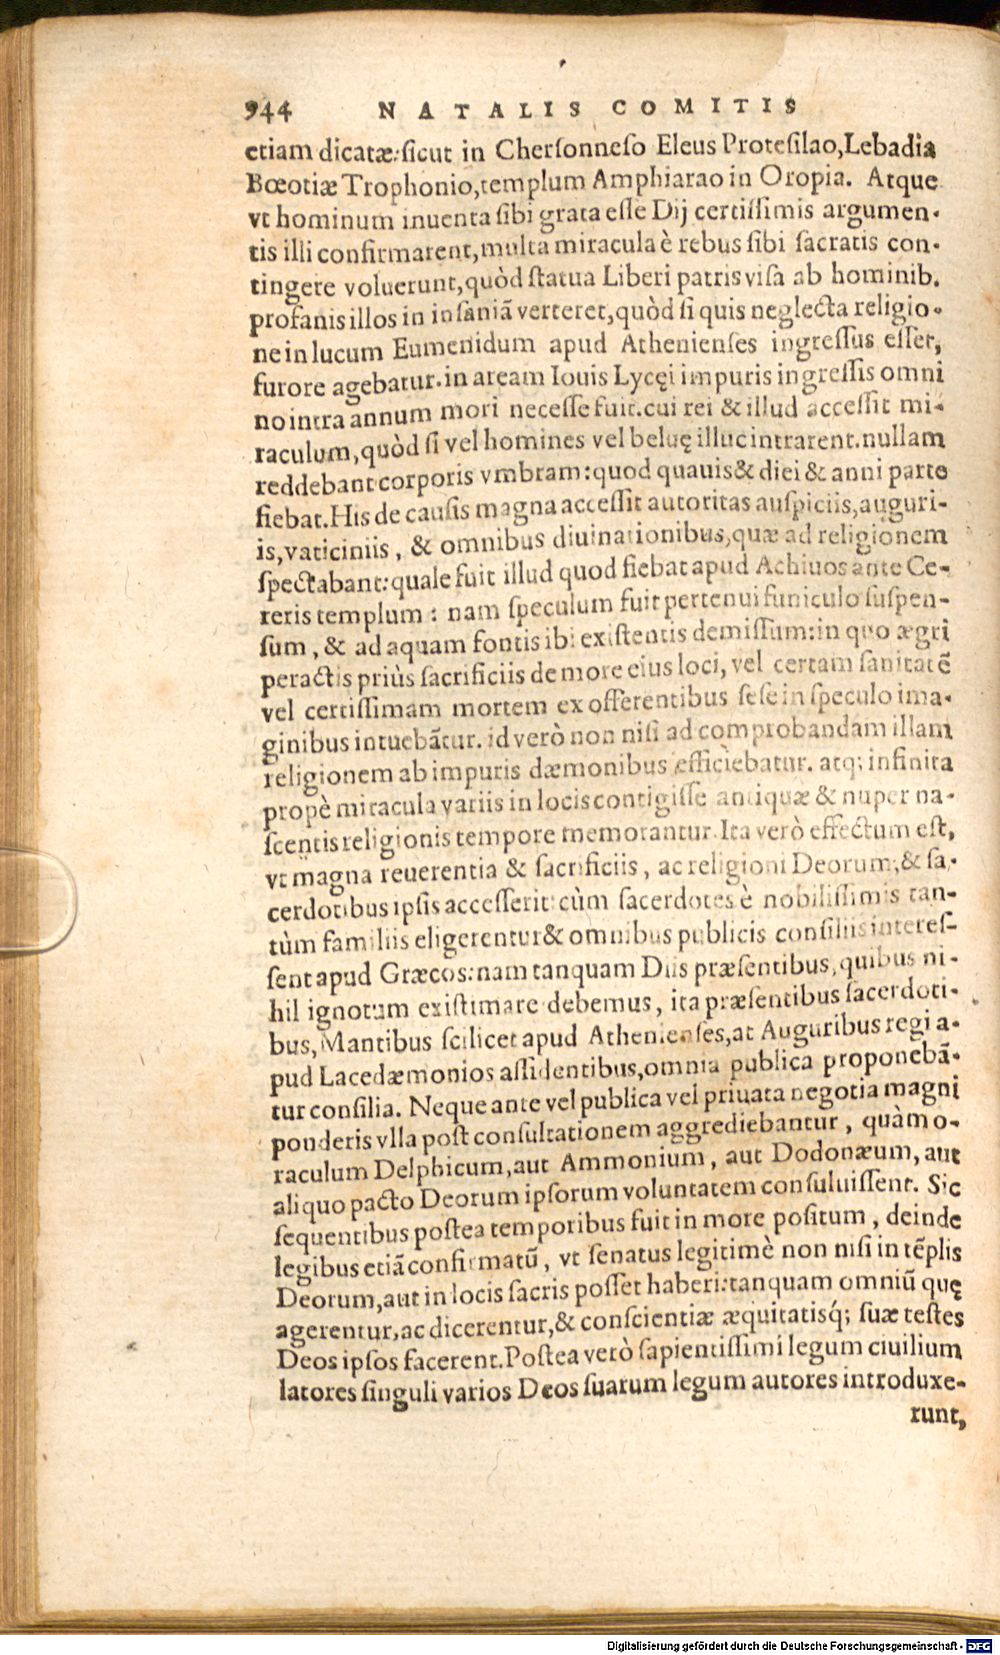 944 NATALIS COMITIS
etiam dicatæ: sicut in Chersonneso Eleus Protesilao, Lebadia
Bœotiæ Trophonio, templum Amphiarao in Oropia. Atque
vt hominum inuenta sibi grata esse Dij certissimis argumen-
tis illi confirmarent, multa miracula è rebus sibi sacratis con-
tingere voluerunt, quòd statua Liberi patris visa ab hominib.
profanis illos in insaniã verteret, quòd si quis neglecta religio-
ne in lucum Eumenidum apud Athenienses ingressus esset,
furore agebatur. in aream Iouis Lycęi impuris ingressis omni
no intra annum mori necesse fuit. cui rei & illud accessit mi-
raculum, quòd si vel homines vel beluę illuc intrarent. nullam
reddebant corporis vmbram: quod quauis & diei & anni parte
fiebat. His de causis magna accessit autoritas auspiciis, auguri-
is, vaticiniis, & omnibus diuinationibus, quæ ad religionem
spectabant: quale fuit illud quod fiebat apud Achiuos ante Ce-
reris templum: nam speculum fuit pertenui funiculo suspen-
sum, & ad aquam fontis ibi existentis demissum: in quo ægri
peractis priùs sacrificiis de more eius loci, vel certam sanitatẽ
vel certissimam mortem ex offerentibus sese in speculo ima-
ginibus intuebãtur. id verò non nisi ad comprobandam illam
religionem ab impuris dæmonibus efficiebatur. atq; infinita
propè miracula variis in locis contigisse antiquæ & nuper na-
scentis religionis tempore memorantur. Ita verò effectum est,
vt magna reuerentia & sacrificiis, ac religioni Deorum, & sa-
cerdotibus ipsis accesserit: cùm sacerdotes è nobilissimis tan-
tùm familiis eligerentur & omnibus publicis consiliis interes-
sent apud Græcos: nam tanquam Diis præsentibus, quibus ni-
hil ignotum existimare debemus, ita præsentibus sacerdoti-
bus, Mantibus scilicet apud Athenienses, at Auguribus regi a-
pud Lacedæmonios assidentibus, omnia publica proponebã-
tur consilia. Neque ante vel publica vel priuata negotia magni
ponderis vlla post consultationem aggrediebantur, quàm o-
raculum Delphicum, aut Ammonium, aut Dodonæum, aut
aliquo pacto Deorum ipsorum voluntatem consuluissent. Sic
sequentibus postea temporibus fuit in more positum, deinde
legibus etiã confirmatũ, vt senatus legitimè non nisi in tẽplis
Deorum, aut in locis sacris posset haberi: tanquam omniũ quę
agerentur, ac dicerentur, & conscientiæ æquitatisq́; suæ testes
Deos ipsos facerent. Postea verò sapientissimi legum ciuilium
latores singuli varios Deos suarum legum autores introduxe-
runt,
Digitalisierung gefördert durch die Deutsche Forschungsgemeinschaft - DFG